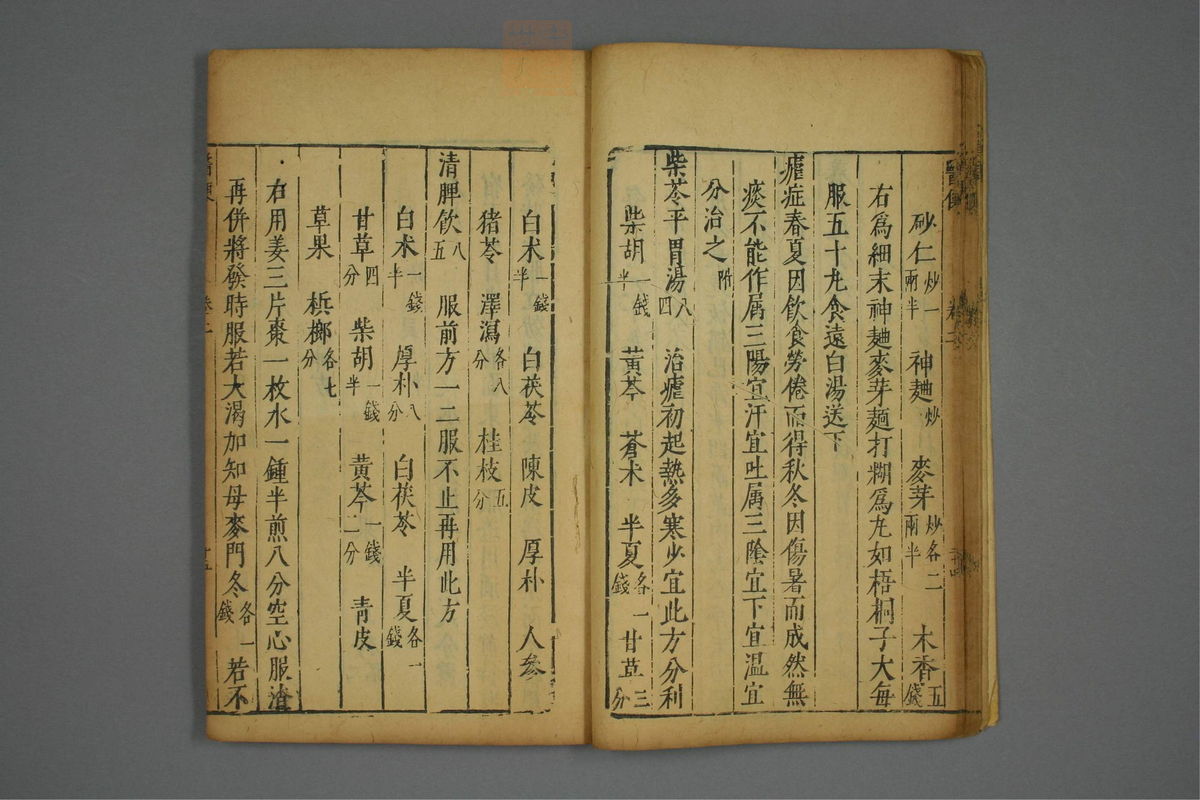 砂仁炒一兩半 神麯炒 麥芽炒各二兩半 木香五錢
右爲細末神麯麥芽麵打糊爲丸如梧桐子大每
服五十丸食遠白湯送下
瘧症春夏因飲食勞倦而得秋冬因傷暑而成然無
痰不能作属三陽宜汗宜吐属三陰宜下宜温宜
分治之附
柴苓平胃湯八四 治瘧初起熱多寒少宜此方分利
柴胡一錢半 黃芩 蒼术 半夏各一錢 甘草三分
白术一錢半 白茯苓 陳皮 厚朴 人參
猪苓 澤瀉各八分 桂枝五分
清脾飲八五 服前方一二服不止再用此方
白术一錢半 厚朴八分 白茯苓 半夏各一錢
甘草四分 柴胡一錢半 黃芩一錢二分 青皮
草果 梹榔各七分
右用姜三片棗一枚水一鍾半煎八分空心服渣
再併將發時服若大渴加知母麥門冬各一錢 若不